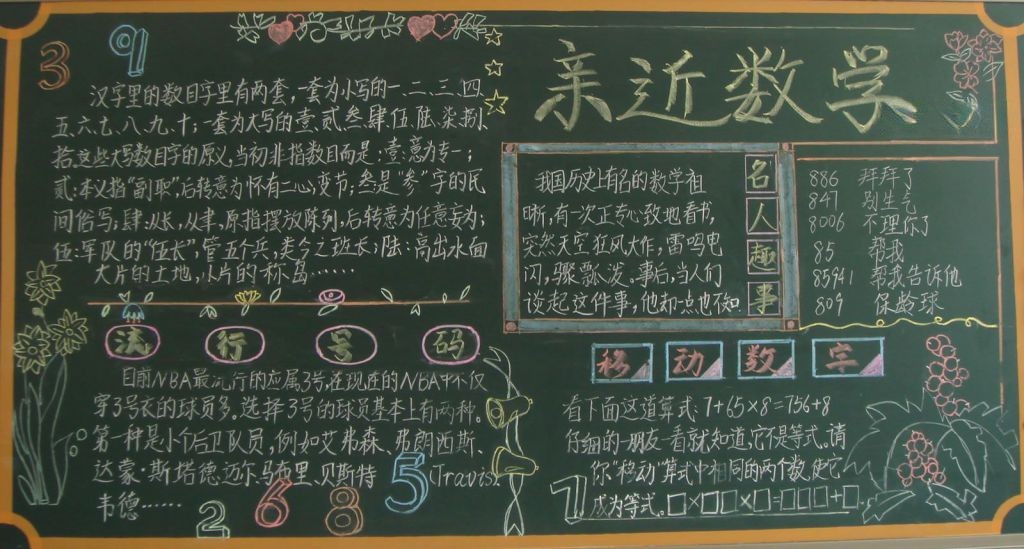 亲近数学
3
9
汉字里的数目字里有两套,一套为小写的一.二.三.四.
五.六.七.八.九.十;一套为大写的壹.贰.叁.肆.伍.陆.柒.捌.
拾.这些大写数目字的原义,当初非指数目而是:壹:意为专一;
贰:本义指"副职",后转意为怀有二心,变节;叁是"参"字的民
间俗写,肆:从长,从聿,原指摆放陈列,后转意为任意妄为;
伍:军队的"伍长",管五个兵,类今之班长;陆:高出水面
大片的土地,小片的称岛……
流行号码
目前NBA最流行的应属3号,在现在的NBA中不仅
穿3号衣的球员多.选择3号的球员基本上有两种.
第一种是小个后卫队员,例如艾弗森、弗朗西斯、
达蒙·斯塔德迈尔.马布里、贝斯特(Travis).
韦德……
2
6
8
5
名人趣事
我国历史上有名的数学祖
晰,有一次正专心致地看书,
突然天空狂风大作,雷鸣电
闪,骤瓢泼.事后,当人们
谈起这件事,他却一点也不知
886 拜拜了
847 别生气
8006 不理你了
85 帮我
85941 帮我告诉他
809 保龄球
移动数字
看下面这道算式:7+65×8=756+8
仔细的一朋友一看就知道,它是等式.请
你"移动"算式中相同的两个数使它
成为等式.□×□□×□=□□□+□.
7